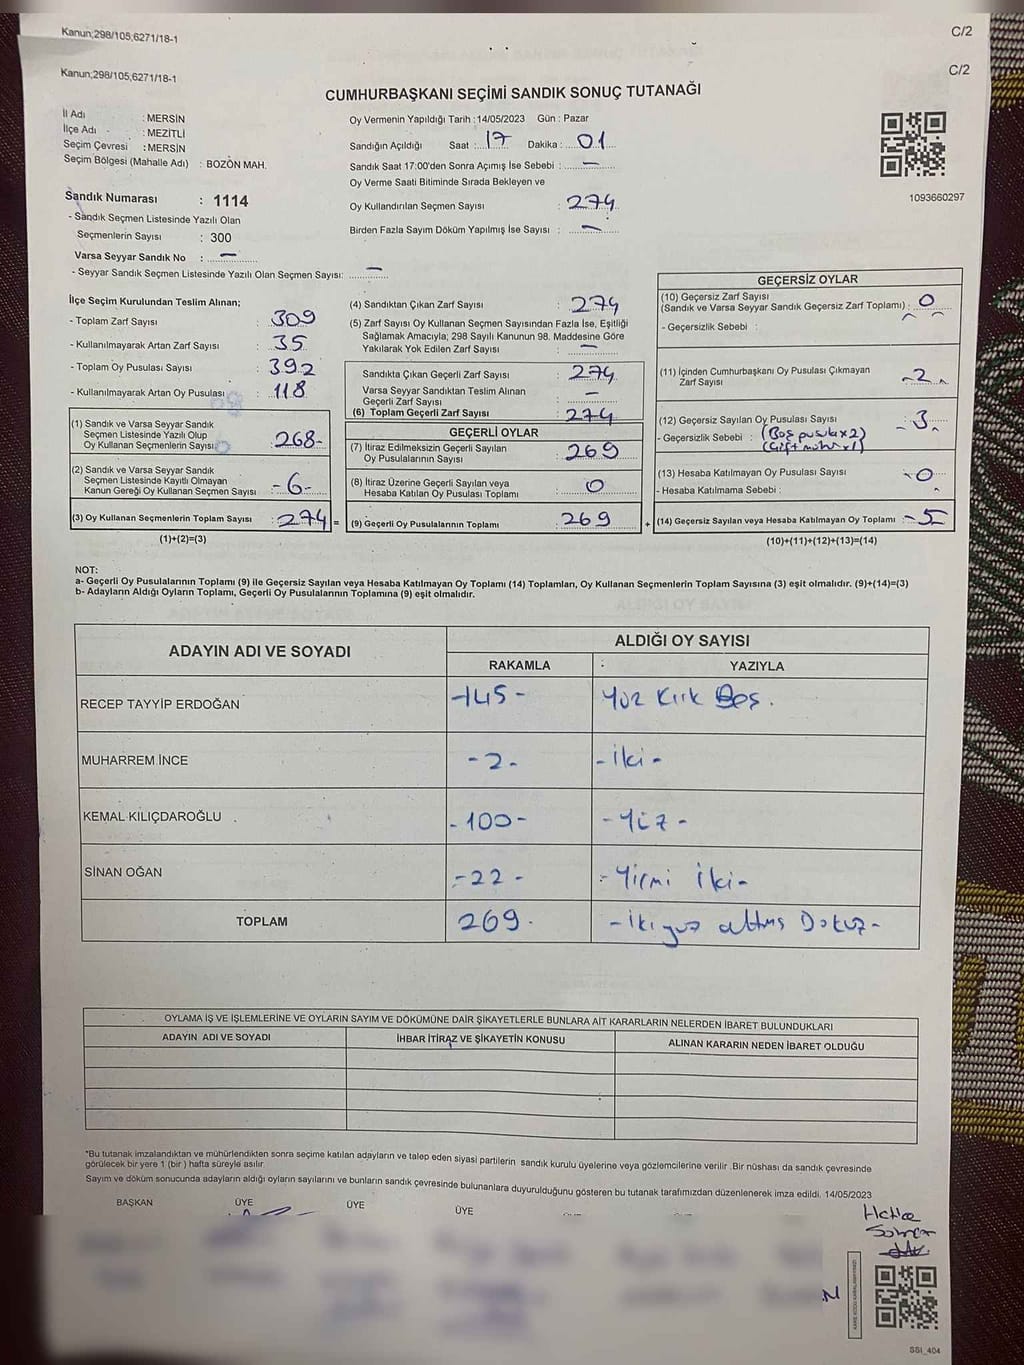 Kanun;298/105,6271/18-1
C/2
Kanun;298/105,6271/18-1
C/2
CUMHURBAŞKANI SEÇİMİ SANDIK SONUÇ TUTANAĞI
İl Adı : MERSİN
İlçe Adı : MEZİTLİ
Seçim Çevresi : MERSİN
Seçim Bölgesi (Mahalle Adı) : BOZÖN MAH.
Oy Vermenin Yapıldığı Tarih : 14/05/2023 Gün : Pazar
Sandığın Açıldığı Saat : 17 Dakika : 01
Sandık Saat 17:00'den Sonra Açımış İse Sebebi : —
Oy Verme Saati Bitiminde Sırada Bekleyen ve
Oy Kullandırılan Seçmen Sayısı : 274
Birden Fazla Sayım Döküm Yapılmış İse Sayısı : —
1093660297
Sandık Numarası : 1114
- Sandık Seçmen Listesinde Yazılı Olan
Seçmenlerin Sayısı : 300
Varsa Seyyar Sandık No : —
- Seyyar Sandık Seçmen Listesinde Yazılı Olan Seçmen Sayısı: —
İlçe Seçim Kurulundan Teslim Alınan;
- Toplam Zarf Sayısı : 309
- Kullanılmayarak Artan Zarf Sayısı : 35
- Toplam Oy Pusulası Sayısı : 392
- Kullanılmayarak Artan Oy Pusulası : 118
(1) Sandık ve Varsa Seyyar Sandık
Seçmen Listesinde Yazılı Olup
Oy Kullanan Seçmenlerin Sayısı : 268-
(2) Sandık ve Varsa Seyyar Sandık
Seçmen Listesinde Kayıtlı Olmayan
Kanun Gereği Oy Kullanan Seçmen Sayısı -6-
(3) Oy Kullanan Seçmenlerin Toplam Sayısı : 274 =
(1)+(2)=(3)
(4) Sandıktan Çıkan Zarf Sayısı : 274
(5) Zarf Sayısı Oy Kullanan Seçmen Sayısından Fazla İse, Eşitliği
Sağlamak Amacıyla; 298 Sayılı Kanunun 98. Maddesine Göre
Yakılarak Yok Edilen Zarf Sayısı : —
Sandıkta Çıkan Geçerli Zarf Sayısı : 274
Varsa Seyyar Sandıktan Teslim Alınan
Geçerli Zarf Sayısı : —
(6) Toplam Geçerli Zarf Sayısı : 274
GEÇERLİ OYLAR
(7) İtiraz Edilmeksizin Geçerli Sayılan
Oy Pusulalarının Sayısı : 269
(8) İtiraz Üzerine Geçerli Sayılan veya
Hesaba Katılan Oy Pusulası Toplamı : 0
(9) Geçerli Oy Pusulalarının Toplamı : 269 +
GEÇERSİZ OYLAR
(10) Geçersiz Zarf Sayısı
(Sandık ve Varsa Seyyar Sandık Geçersiz Zarf Toplamı) : 0
- Geçersizlik Sebebi :
(11) İçinden Cumhurbaşkanı Oy Pusulası Çıkmayan
Zarf Sayısı -2-
(12) Geçersiz Sayılan Oy Pusulası Sayısı -3-
- Geçersizlik Sebebi : (Boş pusula x2)
(Çift mühür x1)
(13) Hesaba Katılmayan Oy Pusulası Sayısı -0
- Hesaba Katılmama Sebebi :
(14) Geçersiz Sayılan veya Hesaba Katılmayan Oy Toplamı -5
(10)+(11)+(12)+(13)=(14)
NOT:
a- Geçerli Oy Pusulalarının Toplamı (9) ile Geçersiz Sayılan veya Hesaba Katılmayan Oy Toplamı (14) Toplamları, Oy Kullanan Seçmenlerin Toplam Sayısına (3) eşit olmalıdır. (9)+(14)=(3)
b- Adayların Aldığı Oyların Toplamı, Geçerli Oy Pusulalarının Toplamına (9) eşit olmalıdır.
ADAYIN ADI VE SOYADI
ALDIĞI OY SAYISI
RAKAMLA
YAZIYLA
RECEP TAYYİP ERDOĞAN -145- Yüz Kırk Beş.
MUHARREM İNCE -2- -İki-
KEMAL KILIÇDAROĞLU -100- -Yüz-
SİNAN OĞAN -22- -Yirmi İki-
TOPLAM 269- -İkiyüz altmış Dokuz-
OYLAMA İŞ VE İŞLEMLERİNE VE OYLARIN SAYIM VE DÖKÜMÜNE DAİR ŞİKAYETLERLE BUNLARA AİT KARARLARIN NELERDEN İBARET BULUNDUKLARI
ADAYIN ADI VE SOYADI
İHBAR İTİRAZ VE ŞİKAYETİN KONUSU
ALINAN KARARIN NEDEN İBARET OLDUĞU
*Bu tutanak imzalandıktan ve mühürlendikten sonra seçime katılan adayların ve talep eden siyasi partilerin sandık kurulu üyelerine veya gözlemcilerine verilir .Bir nüshası da sandık çevresinde
görülecek bir yere 1 (bir ) hafta süreyle asılır.
Sayım ve döküm sonucunda adayların aldığı oyların sayılarını ve bunların sandık çevresinde bulunanlara duyurulduğunu gösteren bu tutanak tarafımızdan düzenlenerek imza edildi. 14/05/2023
BAŞKAN ÜYE ÜYE ÜYE
SSI_404